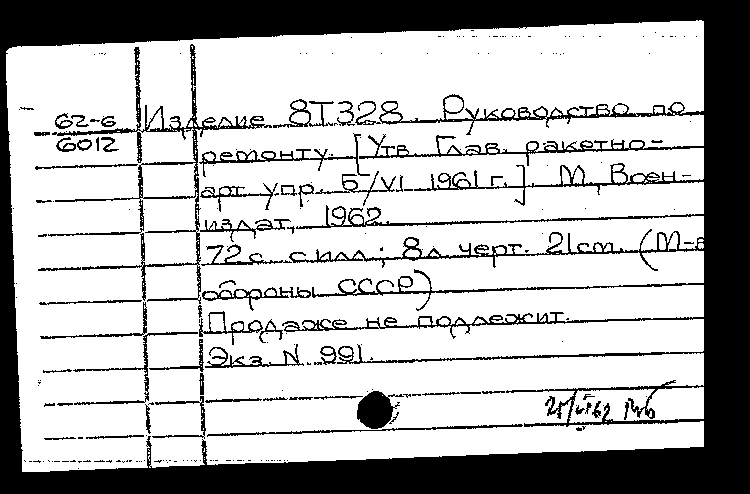 62-6
6012
Изделие 8Т328. Руководство по
ремонту. [Утв. Глав. ракетно-
арт. упр. 5/VI 1961 г.]. М., Воен-
издат, 1962.
72 с. с илл.; 8 л. черт. 21 см. (М-в
обороны СССР)
Продаже не подлежит.
Экз. N 991.